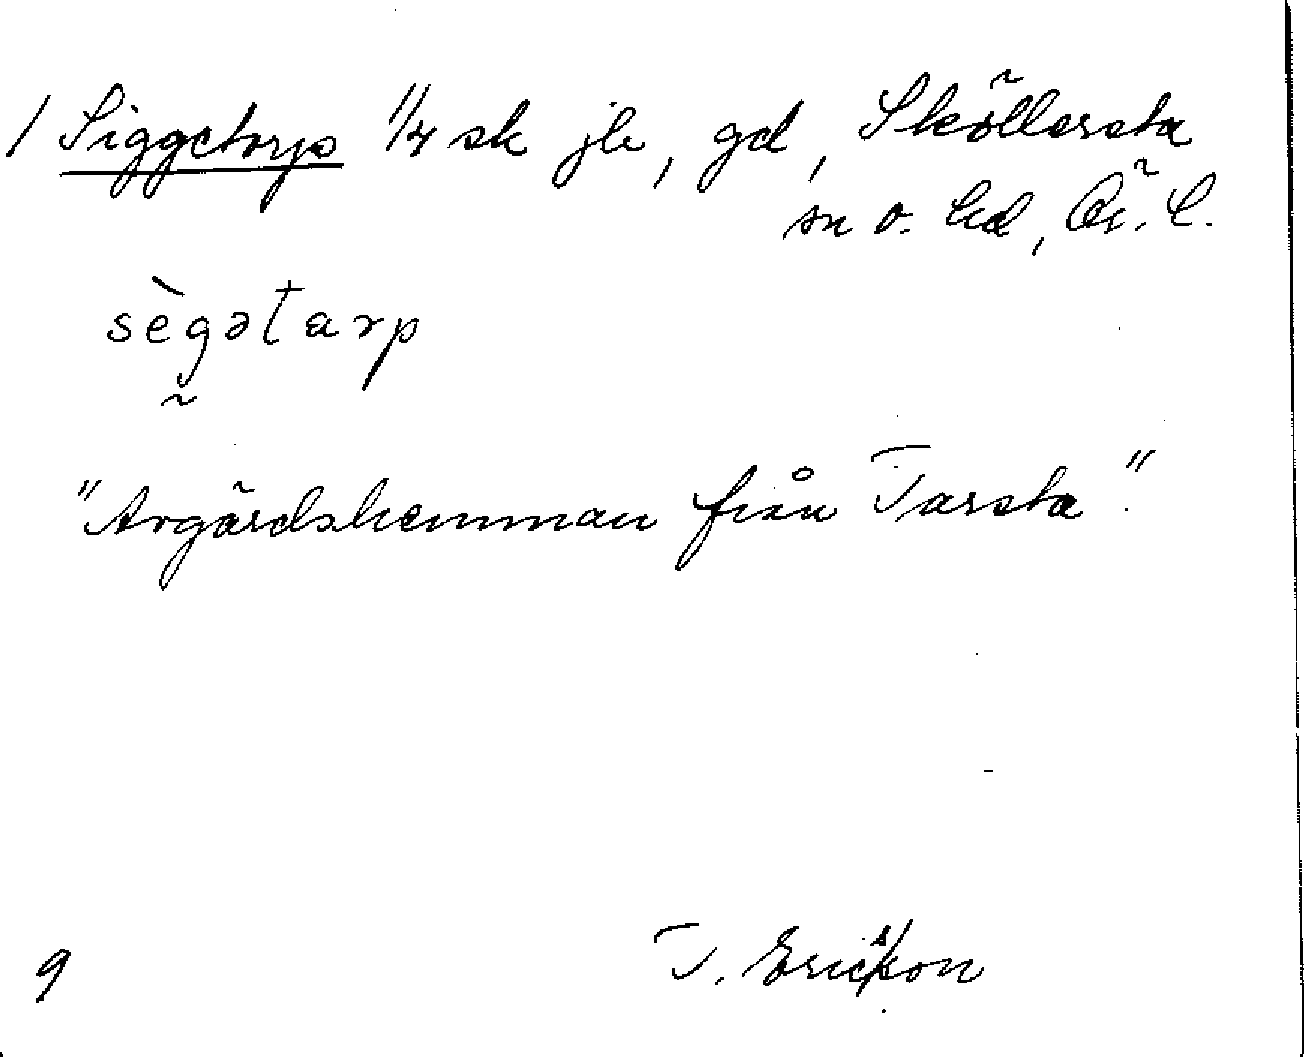 / Siggetorp 1/4 sk jb, gd, Sköllersta
sn o. hd, Ör. l.
sègətarp
"Avgärdshemman från Tarsta".
9 T. Ericsson